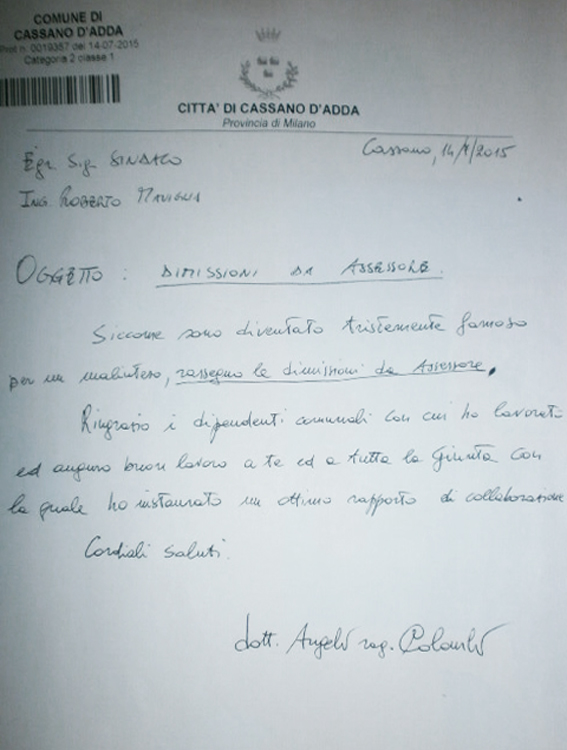 COMUNE DI
CASSANO D'ADDA
Prot n. 0019357 del 14-07-2015
Categoria 2 classe 1
CITTA' DI CASSANO D'ADDA
Provincia di Milano
Cassano, 14/7/2015
Egr. Sig. SINDACO
ING. ROBERTO MAVIGLIA
OGGETTO : DIMISSIONI DA ASSESSORE.
Siccome sono diventato tristemente famoso
per un malinteso, rassegno le dimissioni da Assessore.
Ringrazio i dipendenti comunali con cui ho lavorato
ed auguro buon lavoro a te ed a tutta la Giunta con
la quale ho instaurato un ottimo rapporto di collaborazione
Cordiali saluti.
dott. Angelo rag. Colombo